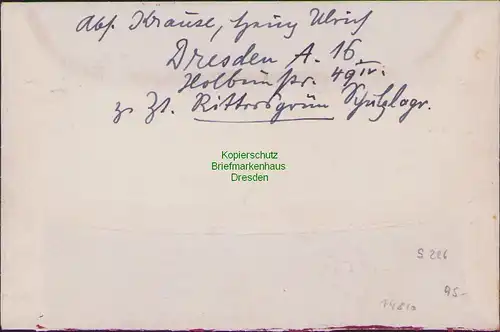 Abs. Krause, Heinz Ulrich
Dresden A. 16
Holbeinstr. 49 IV.
z. Zt. Rittersgrün
Kopierschutz
Briefmarkenhaus
Dresden
S 226
15-